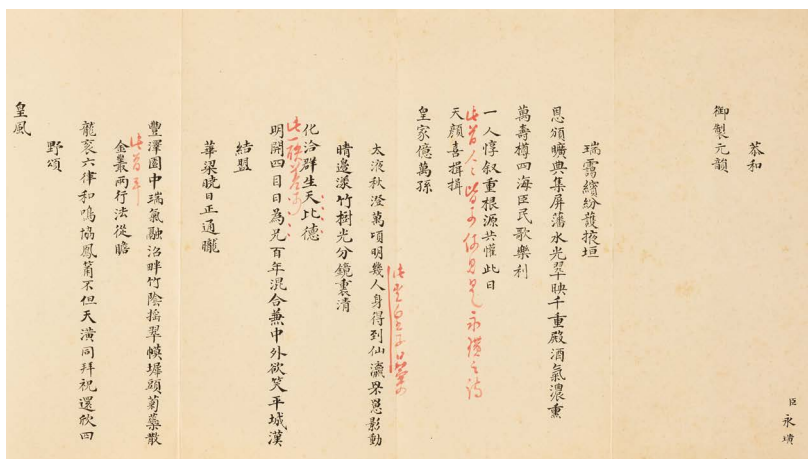 臣永璜
恭和
御製元韻
瑞靄繽紛護掖垣
恩頒曠典集屏藩水光翠映千重殿酒氣濃熏
萬壽樽四海臣民歌樂利
一人惇叙重根源共懽此日
天顔喜揖揖
皇家億萬孫
太液秋澄萬頃明幾人身得到仙瀛罘罳影動
晴邊漾竹樹光分鏡裏清
化洽群生天比德
明開四目日為兄百年混合兼中外欲笑平城漢
結盟
華梁曉日正通朧
豐澤園中瑞氣融沼畔竹陰搖翠幙墀頭菊蘂散
金叢兩行法從瞻
龍袞六律和鳴協鳳簫不但天潢同拜祝還欣四
野頌
皇風